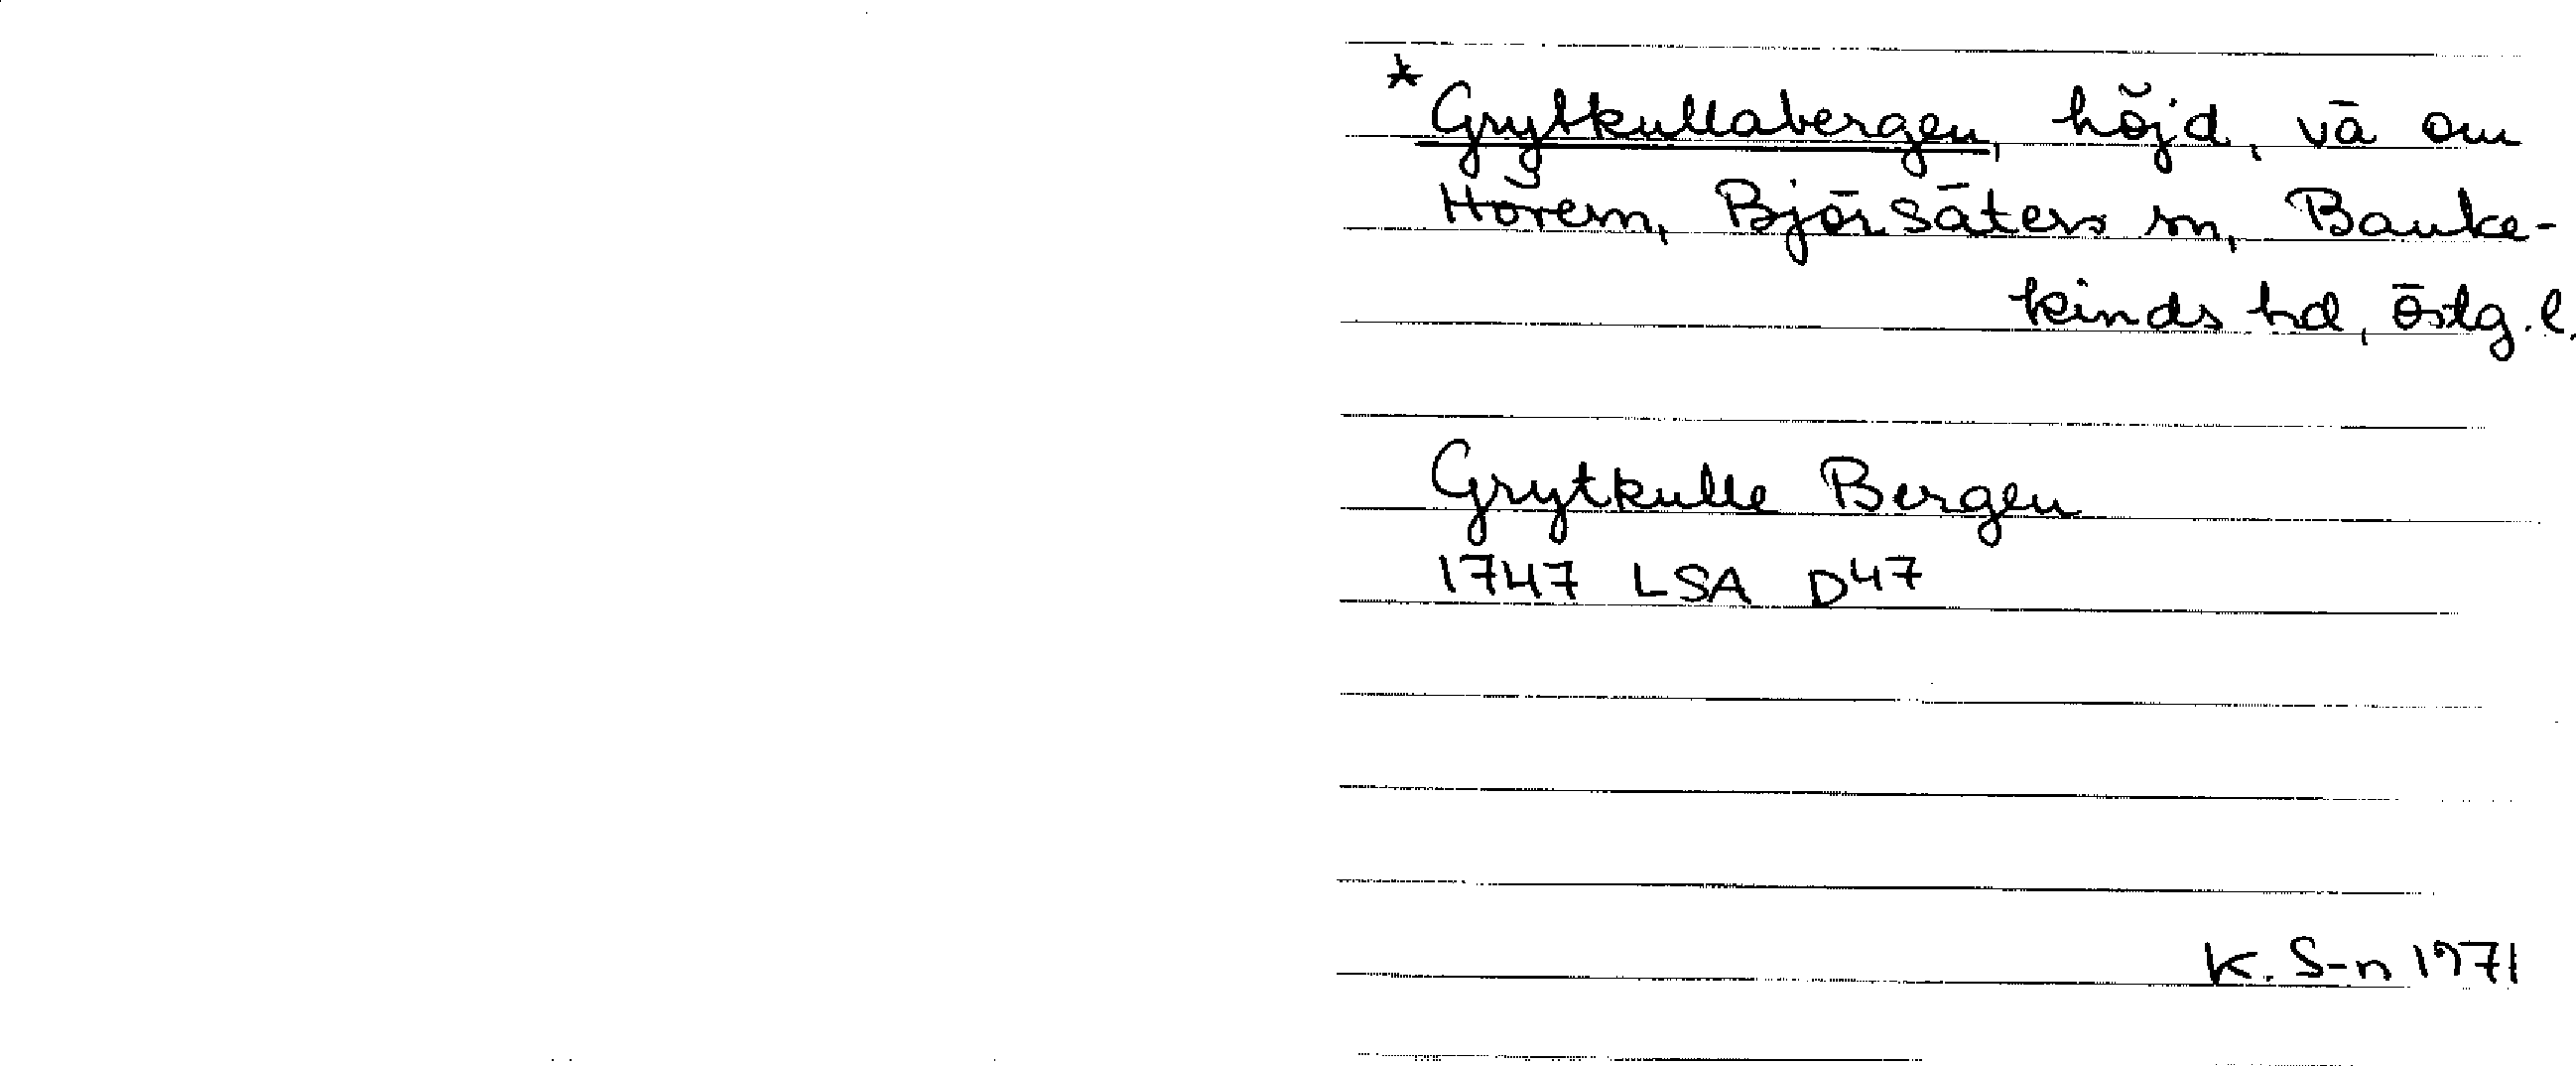 * Grytkullabergen, höjd, vä om
Hörem, Björsäters sn, Banke-
kinds hd, Östg. l.
Grytkulle Bergen
1747 LSA D47
K. S-n 1971